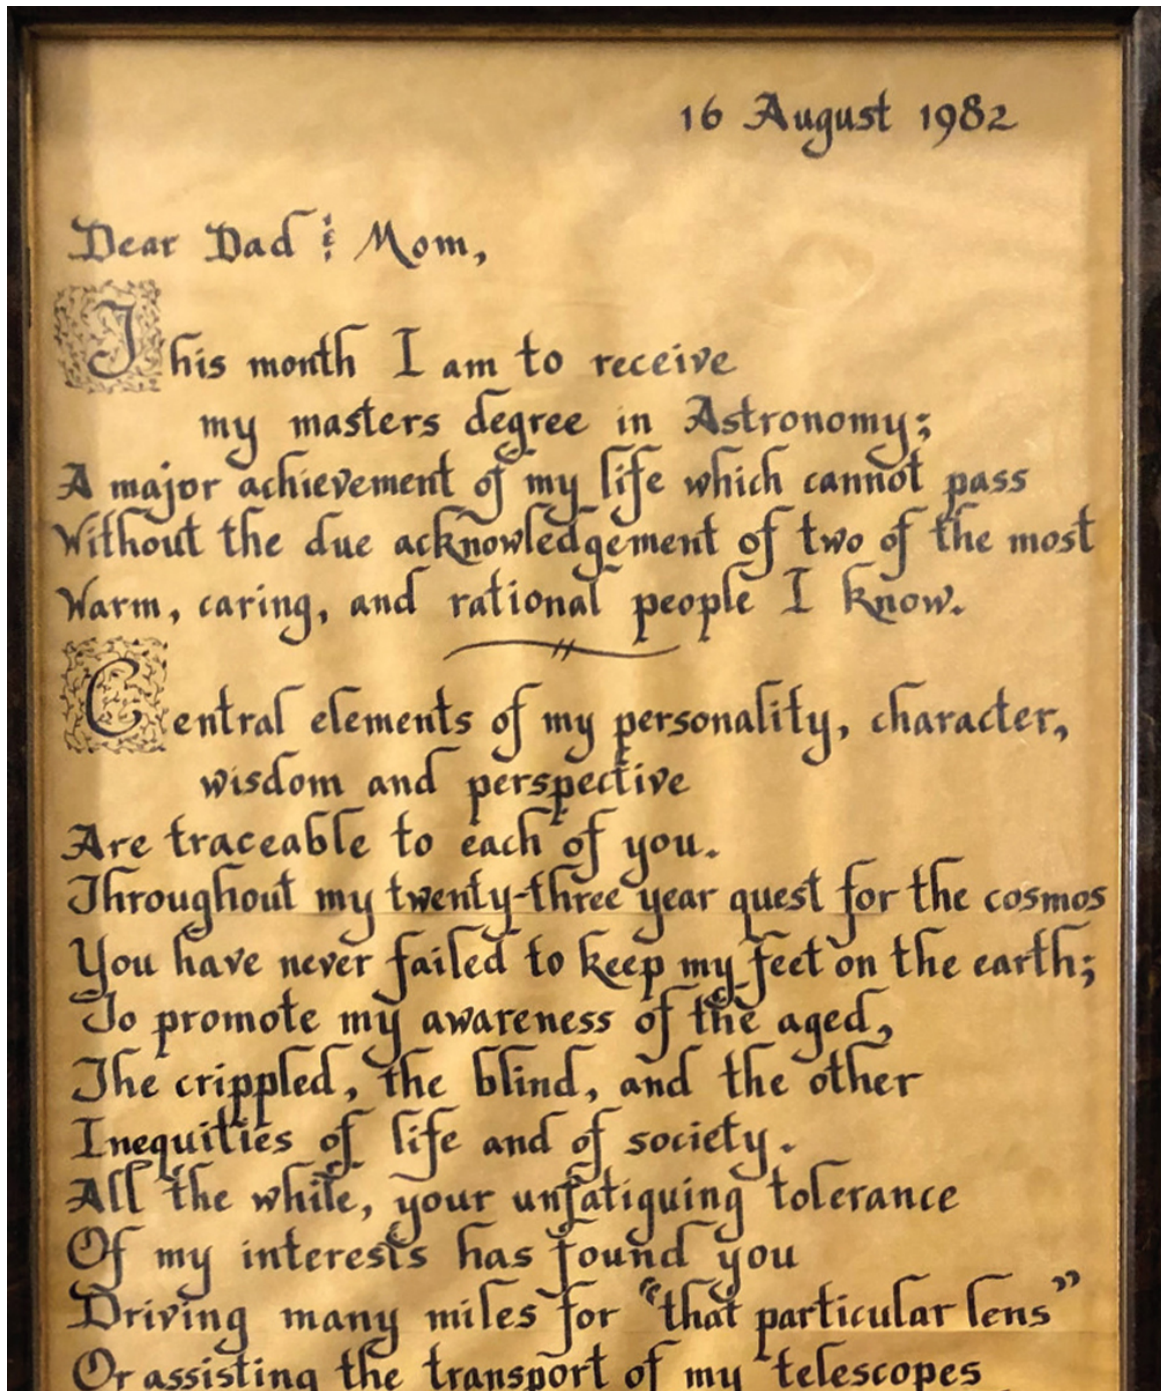 16 August 1982
Dear Dad & Mom,
This month I am to receive
my masters degree in Astronomy;
A major achievement of my life which cannot pass
Without the due acknowledgement of two of the most
Warm, caring, and rational people I know.
Central elements of my personality, character,
wisdom and perspective
Are traceable to each of you.
Throughout my twenty-three year quest for the cosmos
You have never failed to keep my feet on the earth;
To promote my awareness of the aged,
The crippled, the blind, and the other
Inequities of life and of society.
All the while, your unfatiguing tolerance
Of my interests has found you
Driving many miles for "that particular lens"
Or assisting the transport of my telescopes